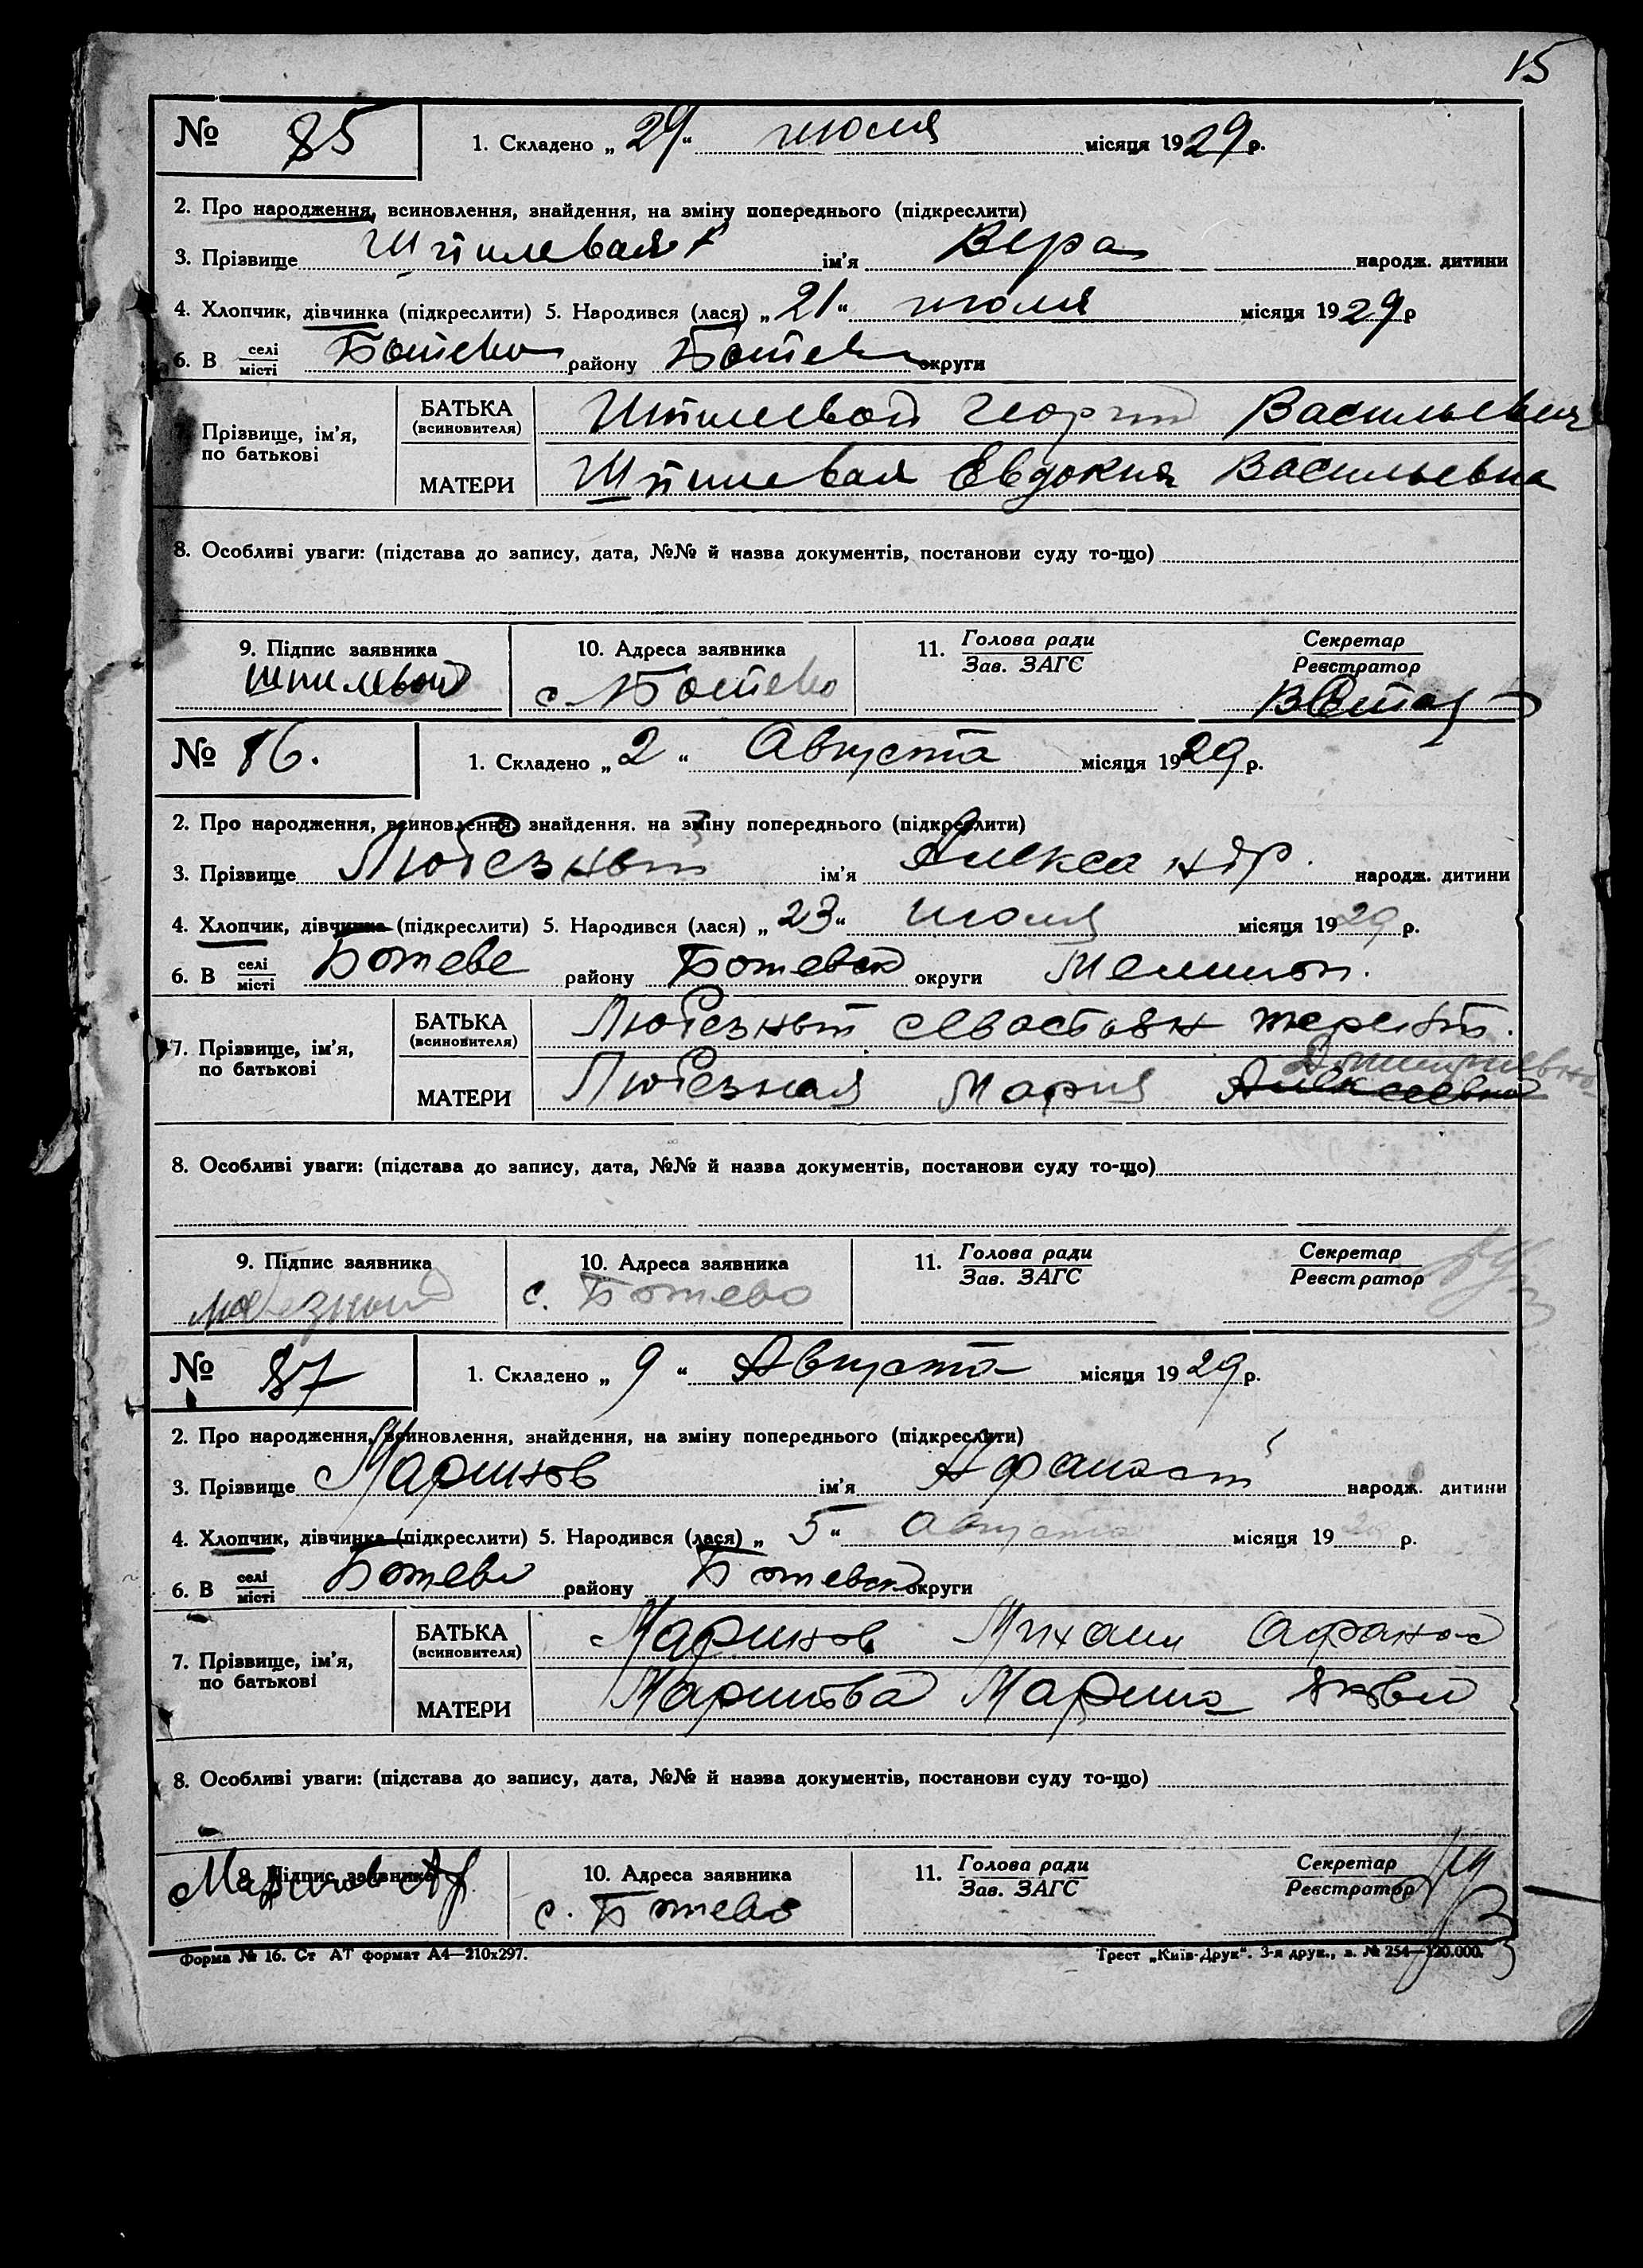 15
№ 85 1. Складено „29“ июля місяця 1929 р.
2. Про народження, всиновлення, знайдення, на зміну попереднього (підкреслити)
3. Прізвище Шпилевая ім’я Вера народж. дитини
4. Хлопчик, дівчинка (підкреслити) 5. Народився (лася) „21“ июля місяця 1929 р
6. В селі місті Ботево району Ботев округи
Прізвище, ім’я, по батькові
БАТЬКА (всиновителя) Шпилевой Георгий Васильевич
МАТЕРИ Шпилевая Евдокия Васильевна
8. Особливі уваги: (підстава до запису, дата, №№ й назва документів, постанови суду то-що)
9. Підпис заявника 10. Адреса заявника 11. Голова ради Зав. ЗАГС Секретар Реєстратор
Шпилевой с. Ботево
№ 86. 1. Складено „2“ Августа місяця 1929 р.
2. Про народження, всиновлення, знайдення. на зміну попереднього (підкреслити)
3. Прізвище Любезный ім’я Александр. народж. дитини
4. Хлопчик, дівчинка (підкреслити) 5. Народився (лася) „23“ июля місяця 1929 р.
6. В селі місті Ботеве району Ботевск округи Мелитоп.
7. Прізвище, ім’я, по батькові
БАТЬКА (всиновителя) Любезный Севостьян
Дмитриевна
МАТЕРИ Любезная Мария Алексеевна
8. Особливі уваги: (підстава до запису, дата, №№ й назва документів, постанови суду то-що)
9. Підпис заявника 10. Адреса заявника 11. Голова ради Зав. ЗАГС Секретар Реєстратор
Любезный с. Ботево
№ 87 1. Складено „9“ Августа місяця 1929 р.
2. Про народження, всиновлення, знайдення, на зміну попереднього (підкреслити)
3. Прізвище Маринов ім’я Афанасий народж. дитини
4. Хлопчик, дівчинка (підкреслити) 5. Народився (лася) „5“ Августа місяця 1929 р.
6. В селі місті Ботево району Ботевск округи
7. Прізвище, ім’я, по батькові
БАТЬКА (всиновителя) Маринов Михаил Афанас
МАТЕРИ Маринова Марина Яковл
8. Особливі уваги: (підстава до запису, дата, №№ й назва документів, постанови суду то-що)
9. Підпис заявника 10. Адреса заявника 11. Голова ради Зав. ЗАГС Секретар Реєстратор
Маринов с. Ботево
Форма № 16. Ст АТ формат А4—210х297. Трест „Київ-Друк“. 3-я друк., з. № 254—120.000.